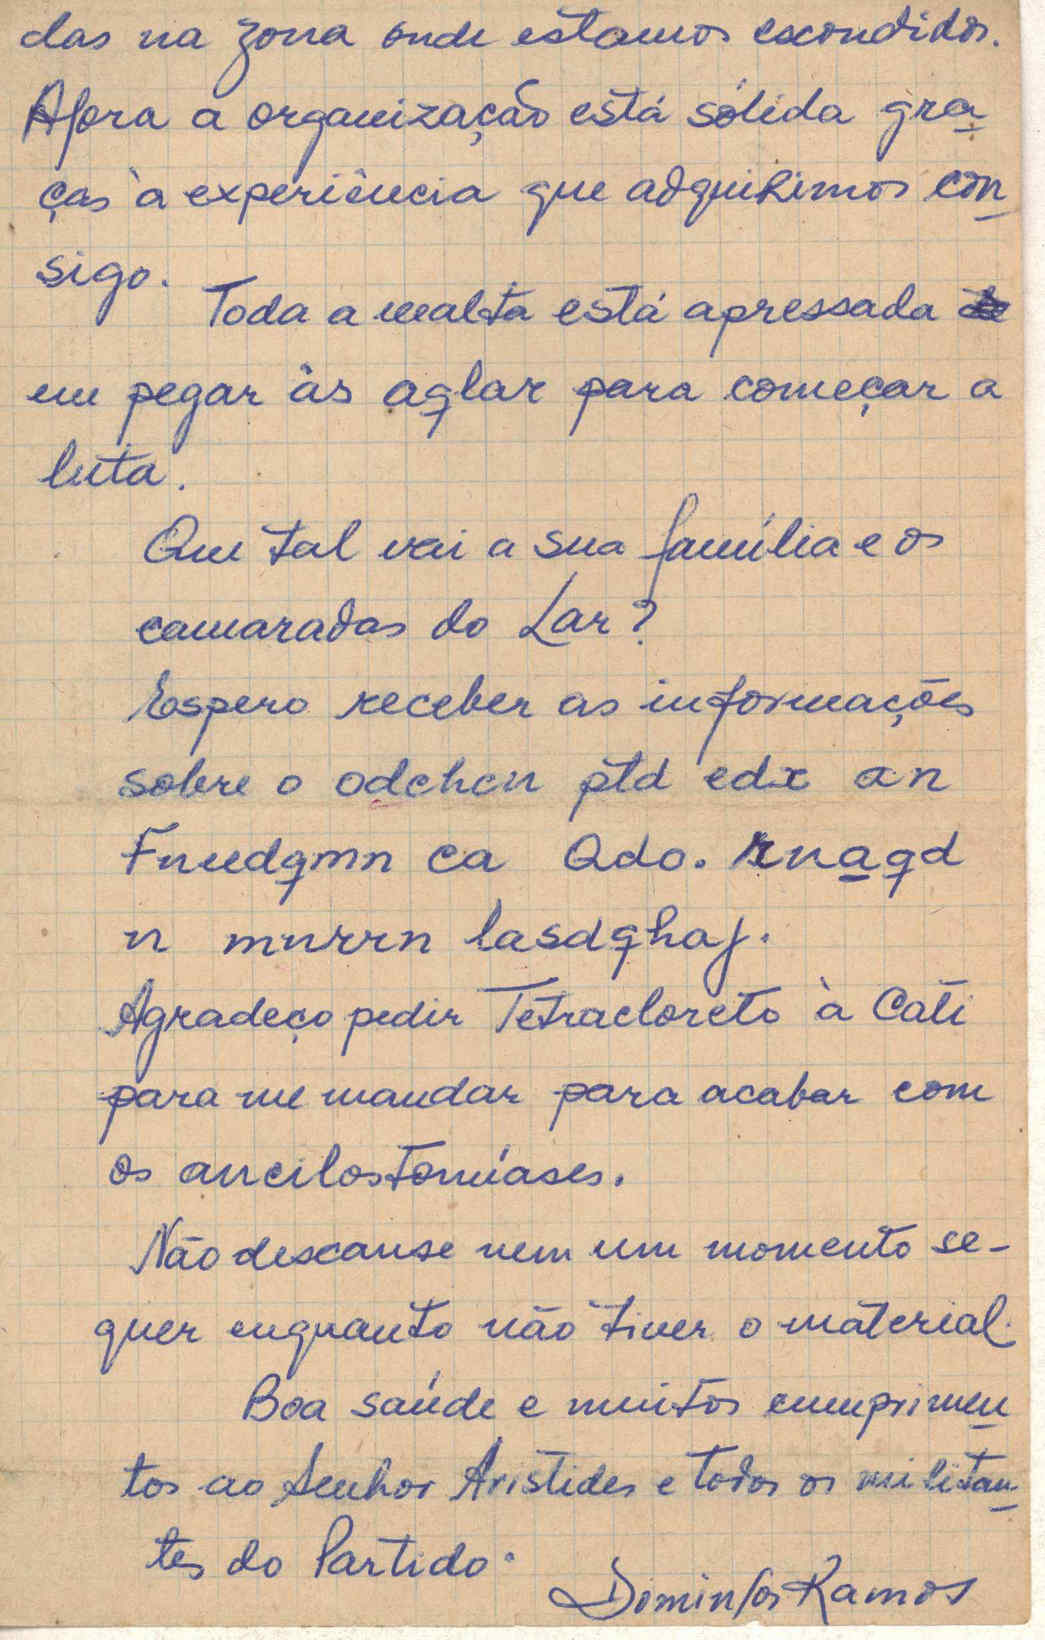 das na zona onde estamos escondidos.
Agora a organização está sólida gra-
ças à experiência que adquirimos con-
sigo.
Toda a malta está apressada
em pegar às aqlar para começar a
luta.
Que tal vai a sua família e os
camaradas do Lar?
Espero receber as informações
sobre o odchcn ptd edx an
Fnudqmn ca Qdo. rnaqd
n mnrrn lasdqhaj.
Agradeço pedir Tetracloreto à Cati
para me mandar para acabar com
os ancilostomíases.
Não descanse nem um momento se-
quer enquanto não tiver o material.
Boa saúde e muitos cumprimen-
tos ao Senhor Aristides e todos os militan-
tes do Partido.
Domingos Ramos